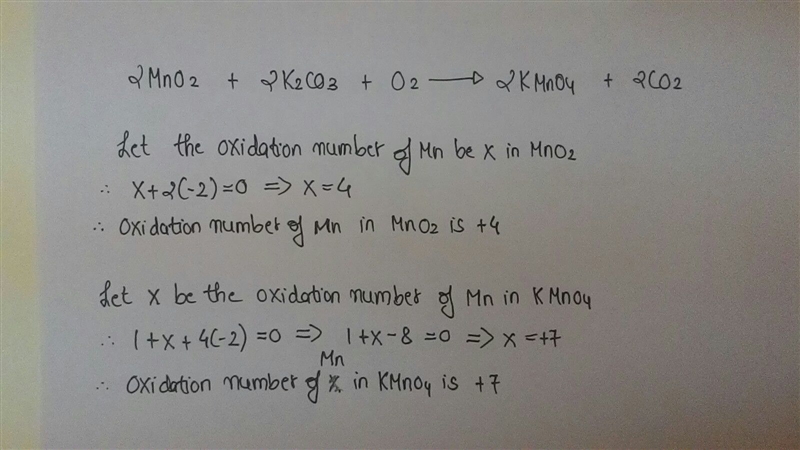 2MnO2 + 2K2CO3 + O2 → 2KMnO4 + 2CO2
Let the oxidation number of Mn be x in MnO2
∴ x+2(-2)=0 => x=4
∴ Oxidation number of Mn in MnO2 is +4
Let x be the oxidation number of Mn in KMnO4
∴ 1+x+4(-2)=0 => 1+x-8=0 => x=+7
∴ Oxidation number of Mn in KMnO4 is +7